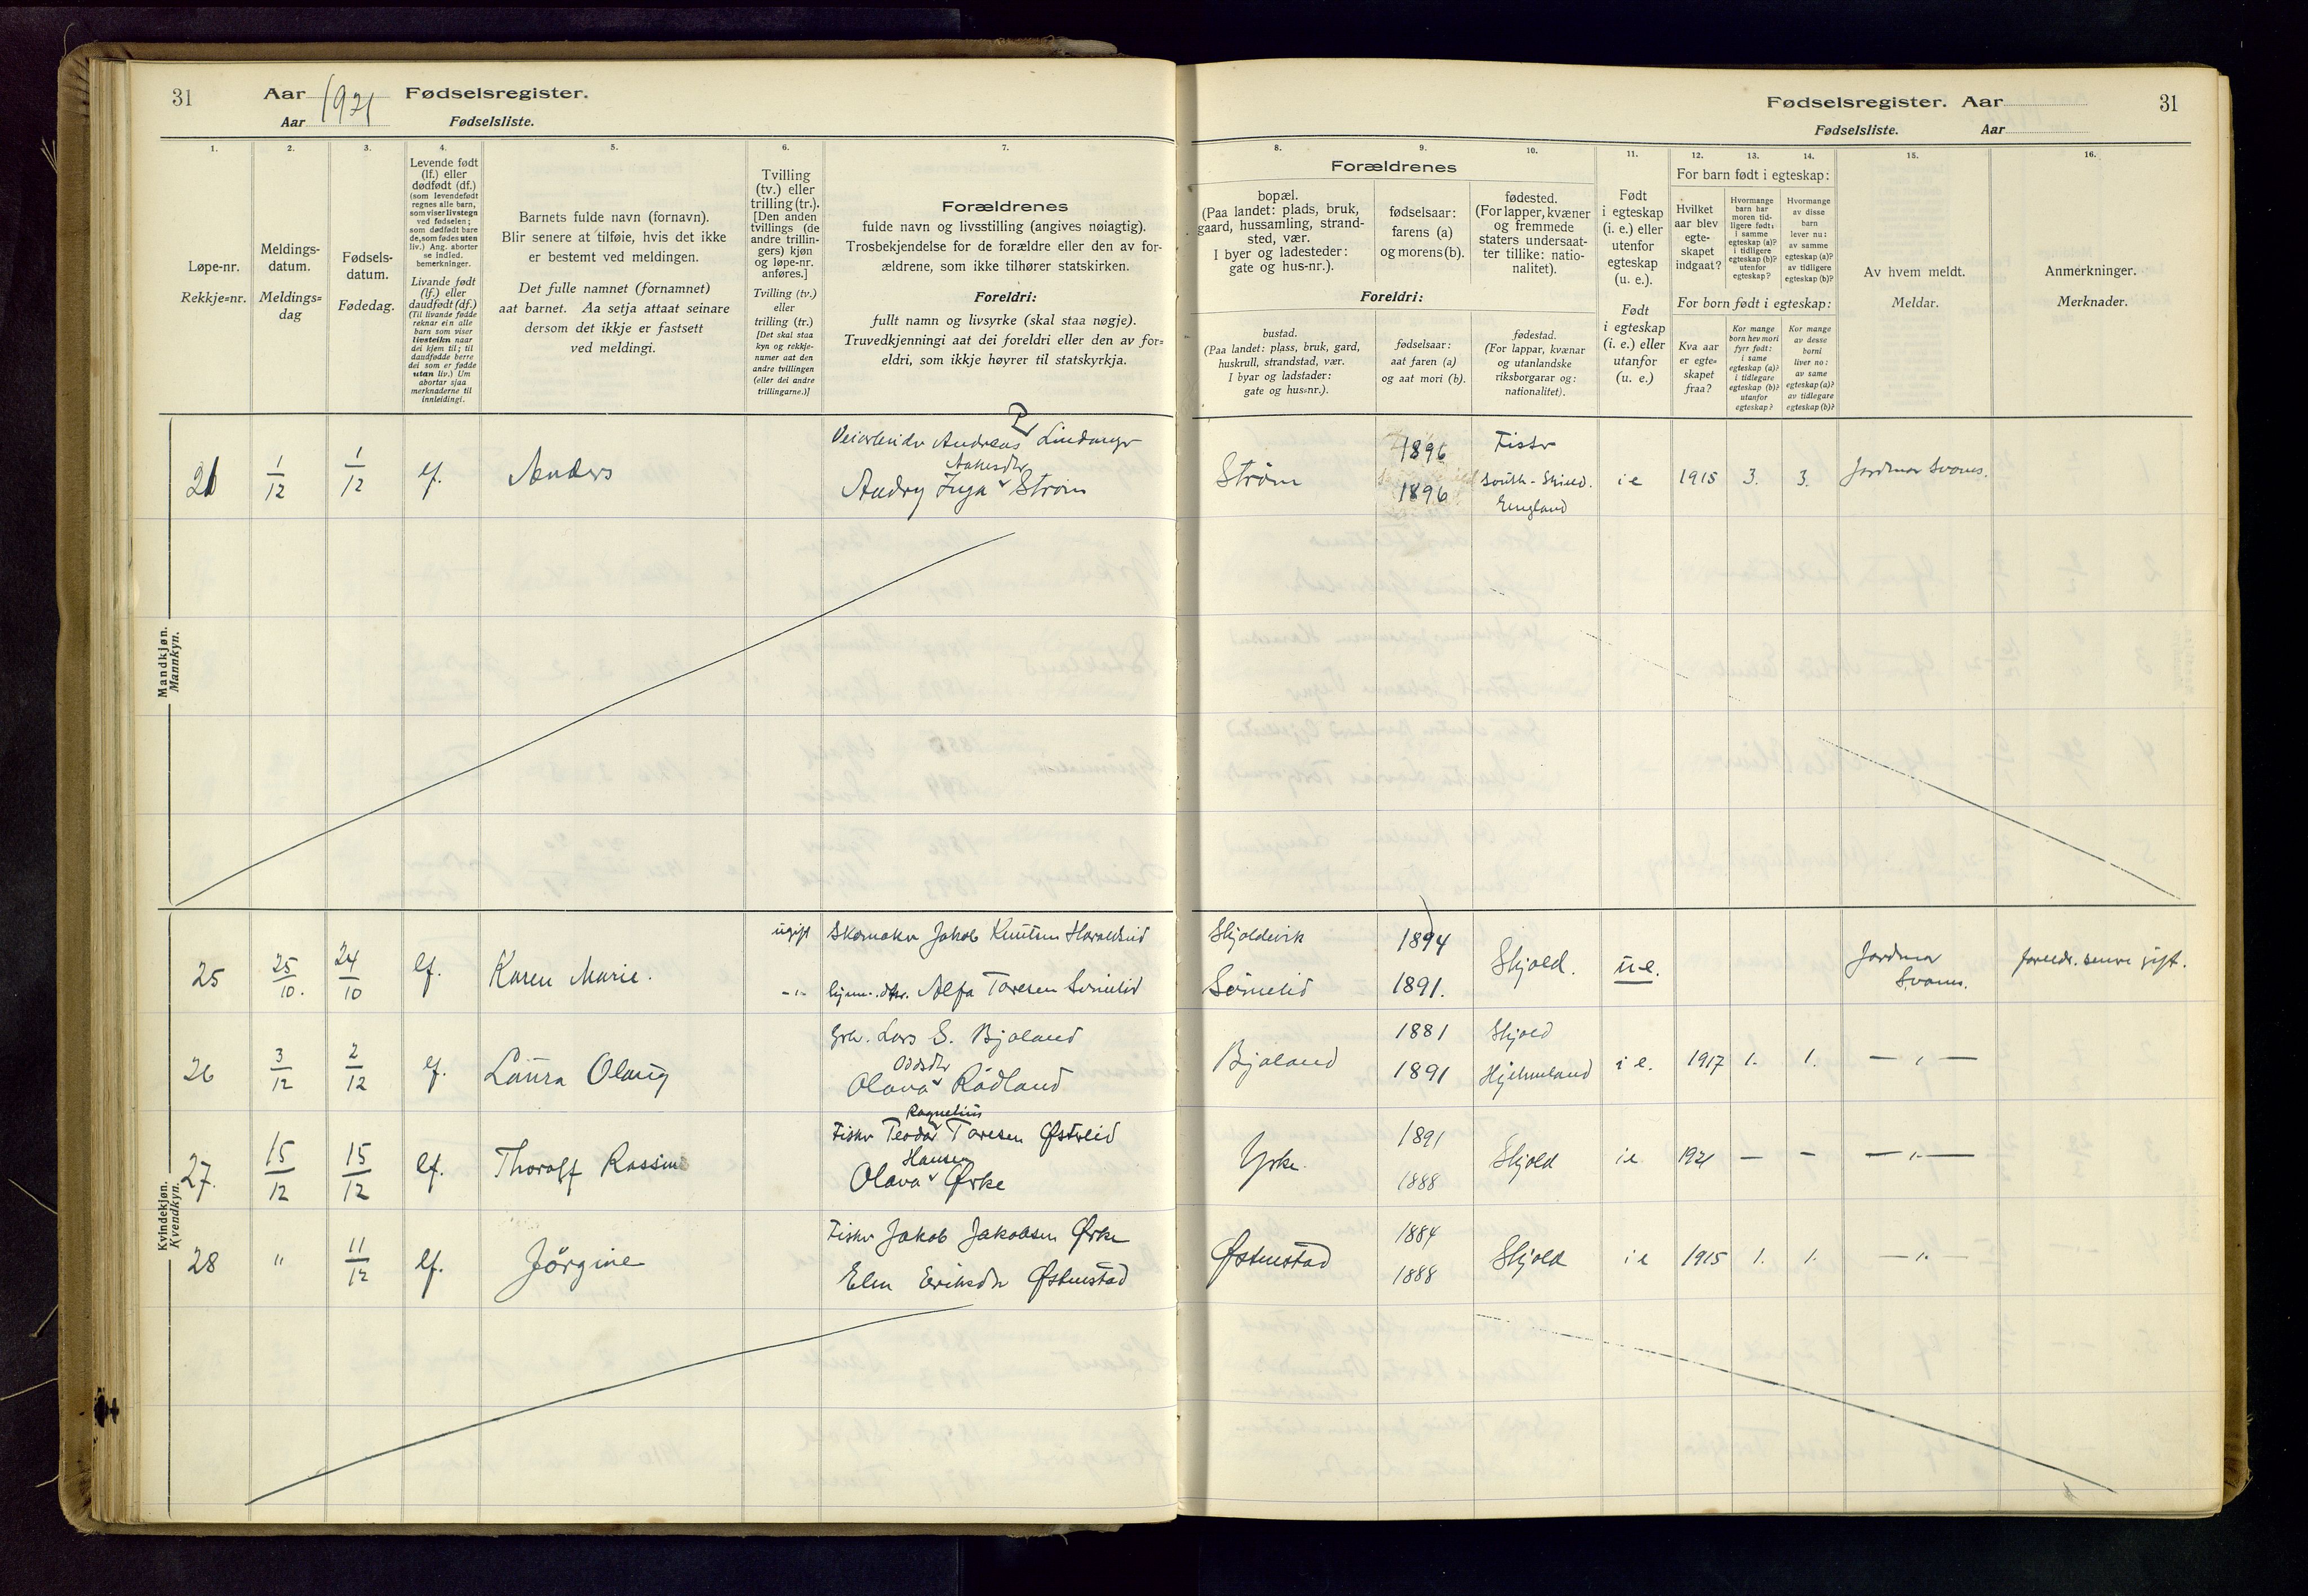 31
Aar 1921 Fødselsregister.
Aar Fødselsliste.
1.
Løpe-nr.
Rekkje=nr.
2.
Meldings-
datum.
Meldings=
dag
3.
Fødsels-
datum.
Fødedag.
4.
Levende født
(lf.) eller
dødfødt (df.)
(som levendefødt
regnes alle barn,
som viser livstegn
ved fødselen;
som dødfødt bare
de, som fødes uten
liv.) Ang. aborter
se indled.
bemerkninger.
Livande født
(lf.) eller
daudfødt (df.)
(Til livande fødde
reknar ein alle
barn som viser
livsteikn naar
dei kjem til; til
daudfødde berre
dei som er fødde
utan liv.) Um
abortar sjaa
merknaderne til
innleidingi.
5.
Barnets fulde navn (fornavn).
Blir senere at tilføie, hvis det ikke
er bestemt ved meldingen.
Det fulle namnet (fornamnet)
aat barnet. Aa setja attaat seinare
dersom det ikkje er fastsett
ved meldingi.
6.
Tvilling
(tv.) eller
trilling (tr.).
[Den anden
tvillings (de
andre trillin-
gers) kjøn
og løpe-nr.
anføres.]
Tvilling (tv.)
eller
trilling (tr.)
[Det skal staa
kyn og rekkje-
numer aat den
andre tvillingen
(eller dei andre
trillingarne.)]
7.
Forældrenes
fulde navn og livsstilling (angives nøiagtig).
Trosbekjendelse for de forældre eller den av for-
ældrene, som ikke tilhører statskirken.
Foreldri:
fullt namn og livsyrke (skal staa nøgje).
Truvedkjenningi aat dei foreldri eller den av for=
eldri, som ikkje høyrer til statskyrkja.
Fødselsregister. Aar 31
Fødselsliste. Aar
8. 9. 10.
Forældrenes
bopæl.
(Paa landet: plads, bruk,
gaard, hussamling, strand-
sted, vær.
I byer og ladesteder:
gate og hus-nr.).
fødselsaar:
farens (a)
og morens (b).
fødested.
(For lapper, kvæner
og fremmede
staters undersaat-
ter tillike: natio-
nalitet).
Foreldri:
bustad.
(Paa landet: plass, bruk, gard,
huskrull, strandstad, vær.
I byar og ladstader:
gate og hus=nr.).
fødselsaar:
aat faren (a)
og aat mori (b).
fødestad.
(For lappar, kvænar
og utanlandske
riksborgarar og:
nationalitet).
11.
Født
i egteskap
(i. e.) eller
utenfor
egteskap
(u. e.).
Født
i egteskap
(i. e.) eller
utanfor
(u. e.)
12. 13. 14.
For barn født i egteskap:
Hvilket
aar blev
egte-
skapet
indgaat?
Hvormange
barn har
moren tid-
ligere født:
i samme
egteskap (a)?
i tidligere
egteskap (b)?
utenfor
egteskap?
Hvormange
av disse
barn
lever nu:
av samme
egteskap (a)?
av tidligere
egteskap (b)?
For born født i egteskap:
Kva aar
er egte=
skapet
fraa?
Kor mange
born hev mori
fyrr født:
i same
egteskap (a)?
i tidlegare
egteskap (b)?
utanfor
egteskap?
Kor mange
av desse
borni
liver no:
av same
egteskap (a)?
av tidlegare
egteskap (b)?
15.
Av hvem meldt.
Meldar.
16.
Anmerkninger.
Merknader.
Mandkjøn.
Mannkyn.
21 1/12 1/12 lf. Anders
Andreas Lindanger
Aakesdtr
Andry Inga Strøm
Strøm 1896
1896 South-Shield.
England
i e 1915 3. 3. Jordmor Svanes.
Kvindekjøn.
Kvendkyn.
25 25/10. 24/10 lf. Karen Marie.
ugift Skomaker Jakob Knutsen Haraldseid
-"- Alfa Toresen Sømelid
Skjoldevik 1894
Sømelid 1891.
Skjold. u.e. Jordmor
Svanes. foreldr. senere gift.
26 3/12 2/12 lf. Laura Olaug
Grb. Lars S. Bjoland
Oddsdtr
Olava Rødland
Bjoland 1881 Skjold
1891 Hjelmeland
i e. 1917 1. 1. — " —
27. 15/12 15/12 lf. Thorolf Rassine
Ragnelius
Fisker Teodor Toresen Østreid
Hansen
Olava Ørke
Yrke. 1891
1888
Skjold i e 1921 — - — " —
28 " 11/12 lf. Jörgine
Fisker Jakob Jakobsen Ørke
Elen Eriksdtr Østenstad
Østenstad 1884
1888
Skjold i e 1915 1. 1. — " —